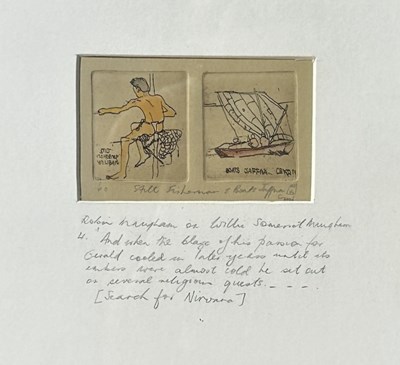 BOATS JAFFNA. CEYLON
Stilt Fisherman & Boats Jaffna
Robin Maugham on Willie Somerset Maugham
4. 'And when the blaze of his passion for
Gerald cooled in later years until its
embers were almost cold he set out
on several religious quests - - - -
[Search for Nirvana]